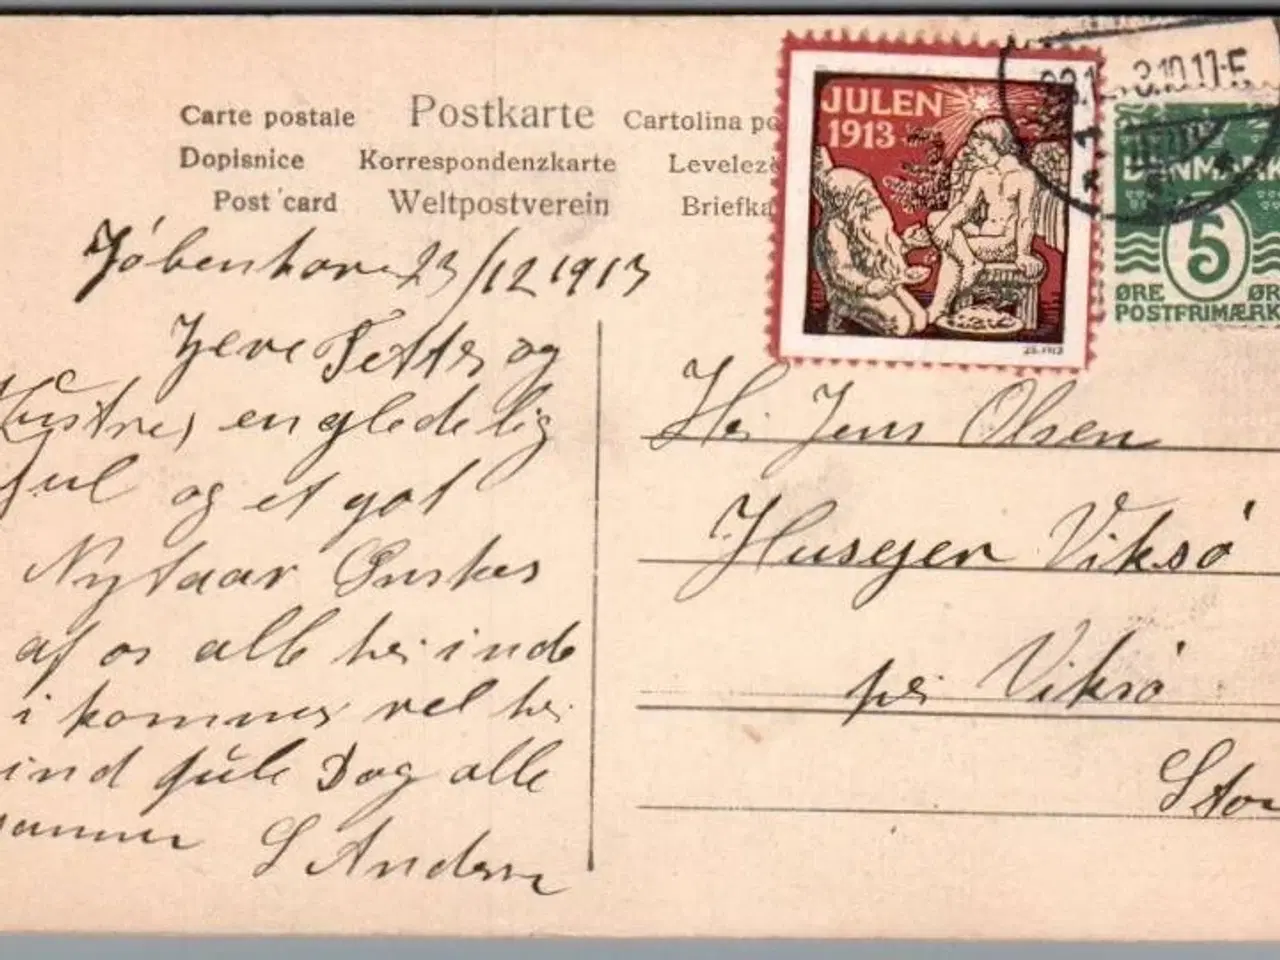 Carte postale Postkarte Cartolina po
Dopisnice Korrespondenzkarte Leveleze
Post card Weltpostverein Briefka
JULEN
1913
DANMARK
5
ØRE ØR
POSTFRIMÆRK
Jøbenhavn 23/12 1913
og
Hustru, en gledelig
Jul og et got
Nytaar Ønskes
af os alle her inde
i kommer vel her
ind Jule Dag alle
sammen S Andersen
Hr Jens Olsen
Husejer Viksø
pr Viksø